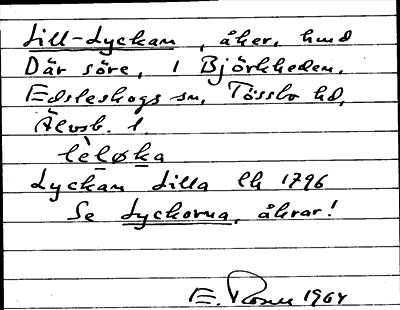 Lill-Lyckan, åker, hmd
Där söre, 1 Björkheden,
Edsleskogs sn, Tössbo hd,
Älvsb. l.
lèløka
Lyckan Lilla lh 1796
Se Lyckorna, åkrar!
E. Rosen 1964